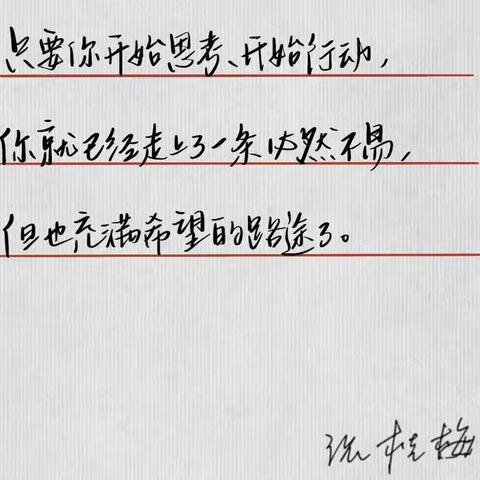 只要你开始思考、开始行动，
你就已经走上了一条必然不易，
但也充满希望的路途了。
张桂梅